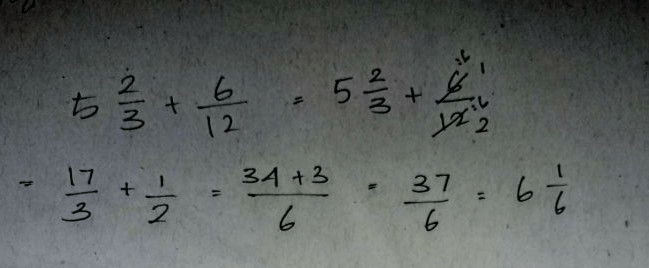 5 2/3 + 6/12 = 5 2/3 + 6/12 :6 1 :6 2
= 17/3 + 1/2 = 34 + 3/6 = 37/6 = 6 1/6